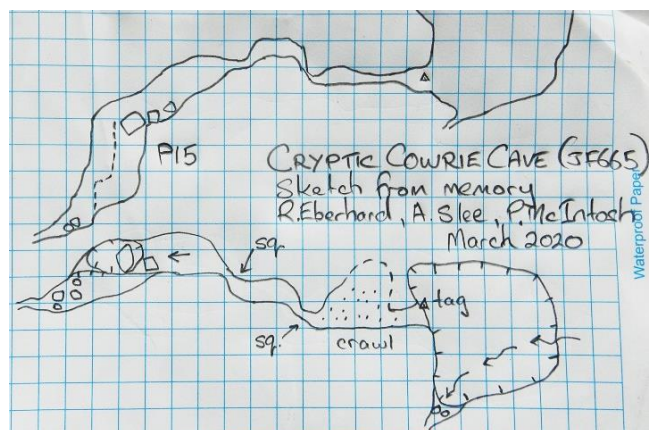 P15
CRYPTIC COWRIE CAVE (JF665)
Sketch from memory
R.Eberhard, A. Slee, P. McIntosh
March 2020
Waterproof Paper
sq.
tag
sq.
crawl